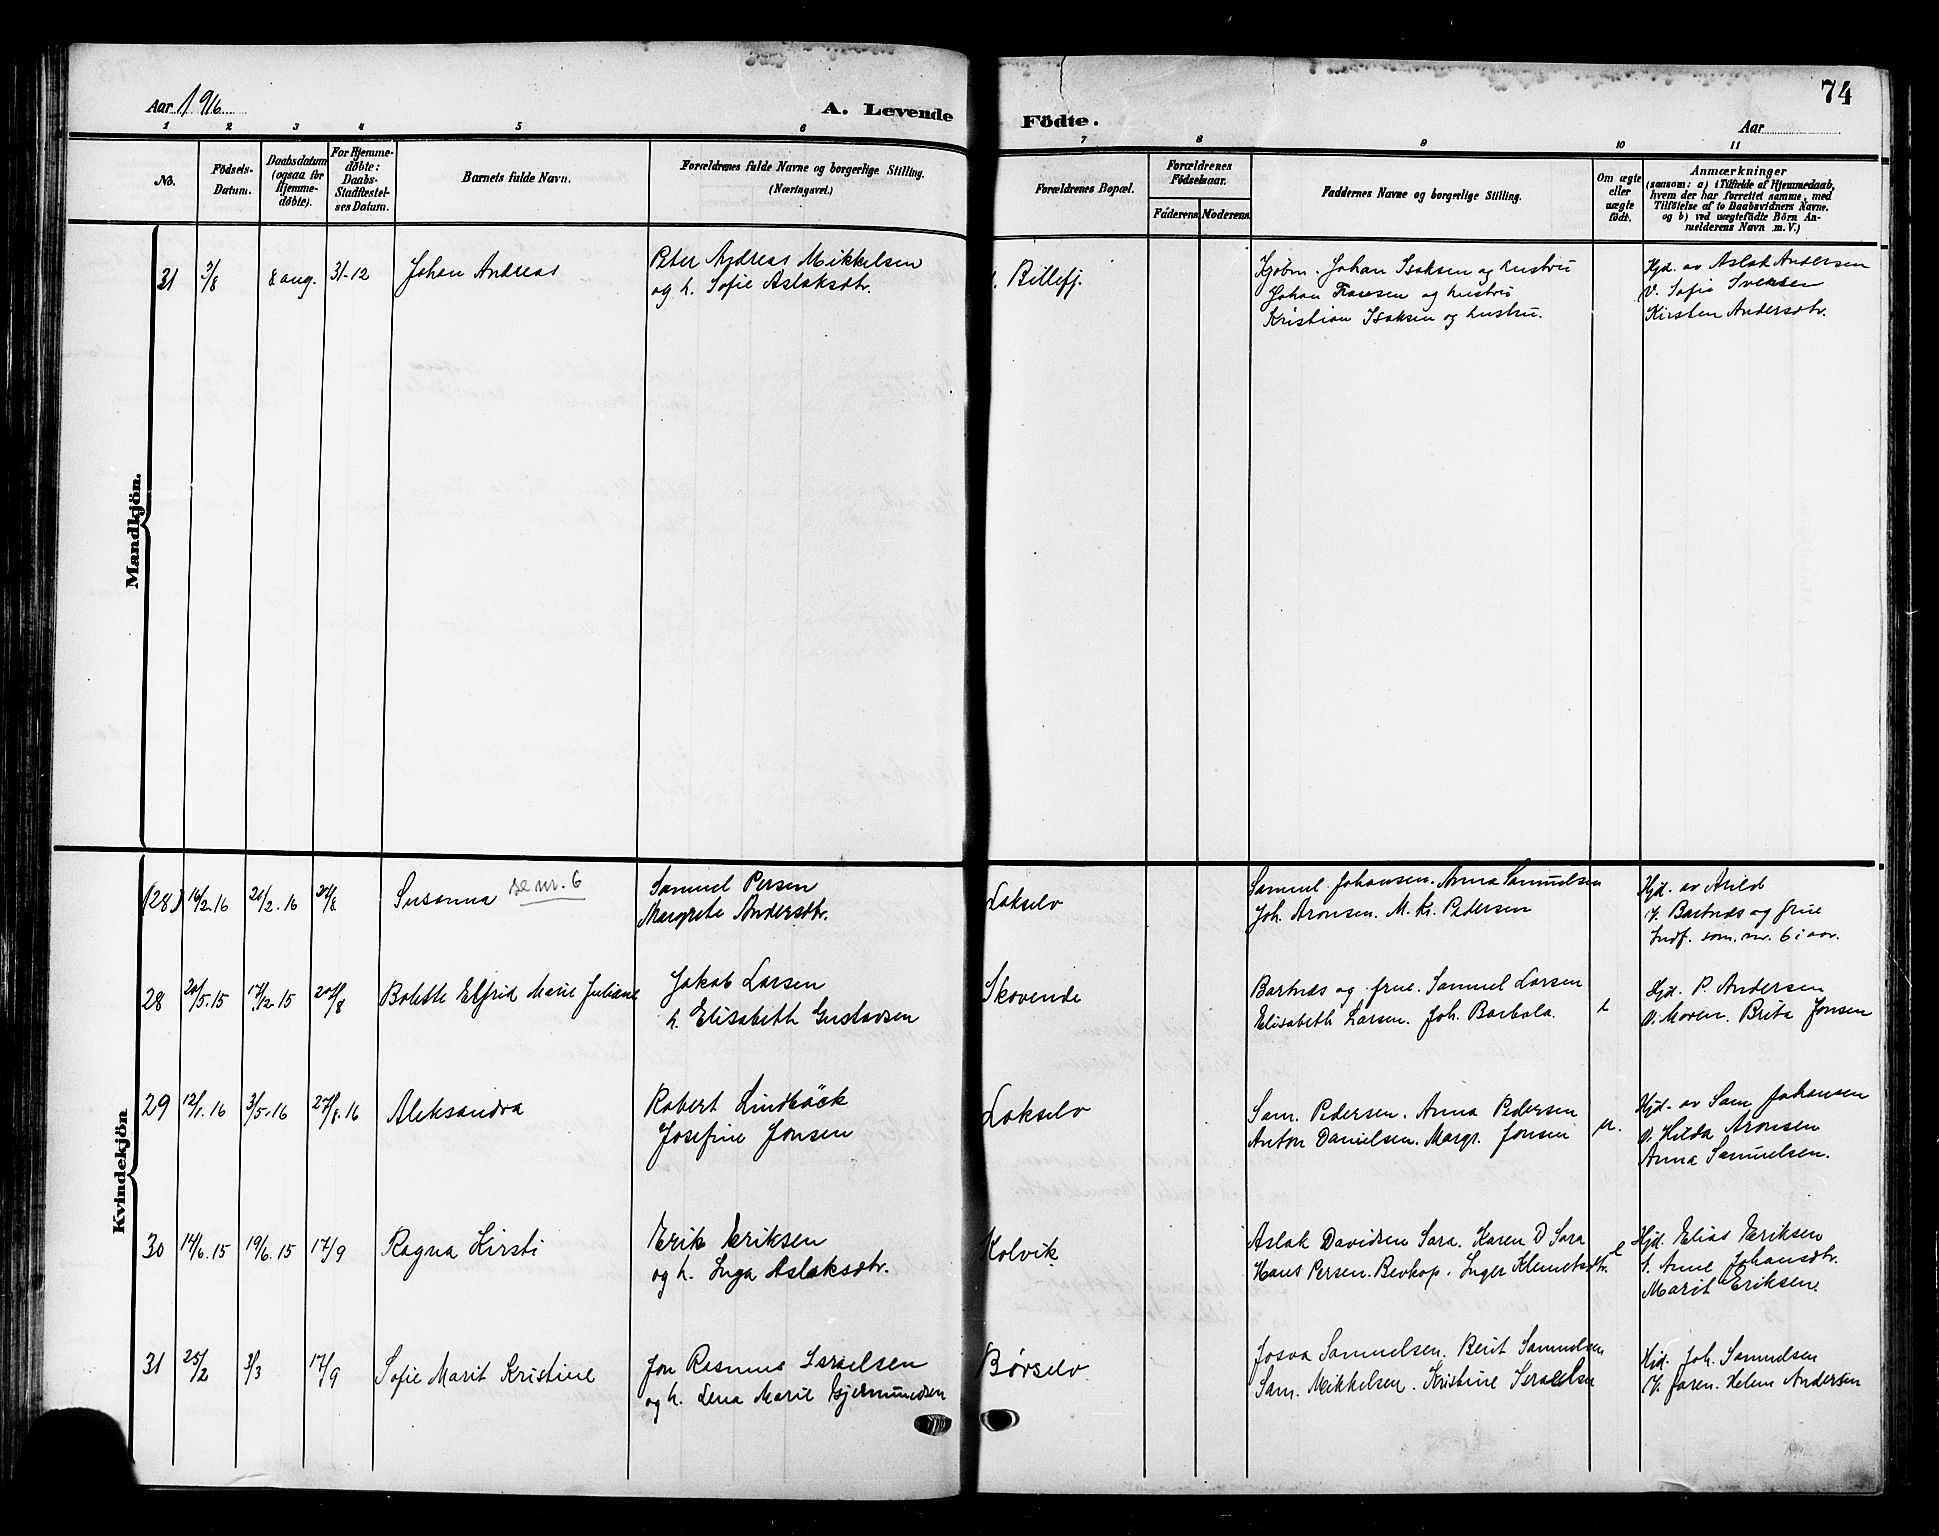 Aar 1916
A. Levende Födte.
74
Aar
1 2 3 4 5 6 7 8 9 10 11
No.
Födsels-Datum.
Daabsdatum (ogsaa for Hjemme-döbte).
For Hjemme-döbte: Daabs-Stadfæstel-ses Datum.
Barnets fulde Navn.
Forældrenes fulde Navne og borgerlige Stilling.
(Næringsvei.)
Forældrenes Bopæl.
Forældrenes Födselsaar.
Faderens. Moderens.
Faddernes Navne og borgerlige Stilling.
Om ægte eller uægte födt.
Anmærkninger
(saasom: a) i Tilfælde af Hjemmedaab,
hvem der har forrettet samme, med
Tilföielse af to Daabsvidners Navne.
og b) ved uægtefödte Börn An-
melderens Navn m. V.)
Mandkjön.
31 3/8 8 aug. 31-12 Johan Andreas
Peter Andreas Mikkelsen
og h. Sofie Aslaksdtr.
Billefj.
Kjøbm. Johan Isaksen og hustru
Johan og hustru
Kristian Isaksen og hustru.
Hjd. av Aslak Andersen
V. Sofie Svensen
Kirsten Andersdtr.
Kvindekjön
(28) 14/2.16 20/2.16 20/8 Susanna se nr. 6
Samuel Persen
Margrete Andersdtr.
Lakselv
Samuel Johansen. Anna Samuelsen
Joh. Aronsen. M. Kr. Pedersen
Hjd. av Arild
V. Bartnæs og frue
Indf. som nr. 6 i aar.
28 20/5.15 17/12.15 20/8 Bolette Elfrid Marie Juliane
Jakob Larsen
h. Elisabeth Gustavsen
Skovende
Bartnæs og frue. Samuel Larsen
Elisabeth Larsen. Joh. Barbala.
Hjd. P. Andersen
V. Moren. Brita Jonsen
29 12/1.16 3/5.16 27/8.16 Aleksandra
Robert Lindbäck
Josefine Jonsen
Lakselv
Sam. Pedersen. Anna Pedersen
Anton Danielsen. Margr. Jonsen
u.
Hjd. av Sam Johansen
V. Hilda Aronsen
Anna Samuelsen.
30 14/6.15 19/6.15 17/9 Ragna Kirsti
Erik Eriksen
og h. Inga Aslaksdtr.
Kolvik
Aslak Davidsen Sara. Karen D Sara
Hans Persen. Bevkop. Inger Klemetsdtr.
Hjd. Elias Eriksen
V. Anne Johansdtr.
Marit Eriksen.
31 25/2 3/3 17/9 Sofie Marit Kristine
Jon Rasmus Israelsen
og h. Lena Marie Gjermundsen
Børselv
Josva Samuelsen. Berit Samuelsen
Sam. Mikkelsen. Kristine Israelsen
Hjd. Joh. Samuelsen
V. faren. Helene Andersen